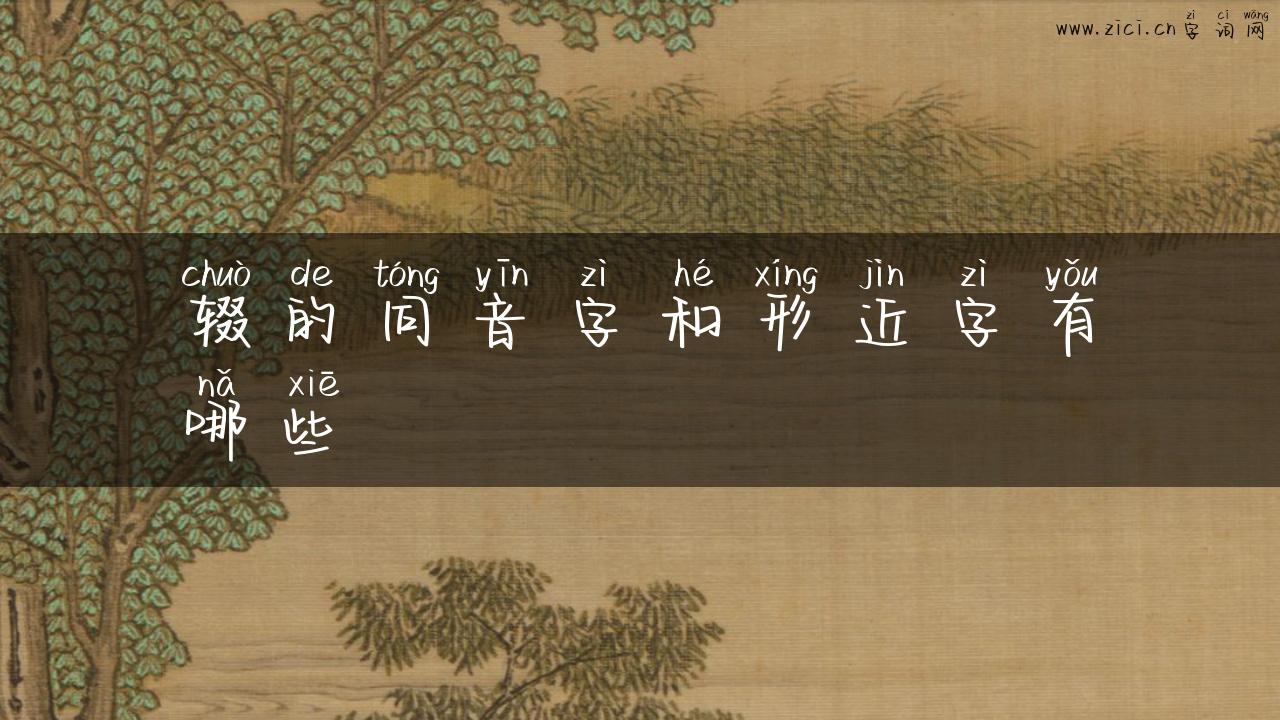 zì cí wǎng
www.zici.cn 字词网
chuò de tóng yīn zì hé xíng jìn zì yǒu
辍的同音字和形近字有
nǎ xiē
哪些